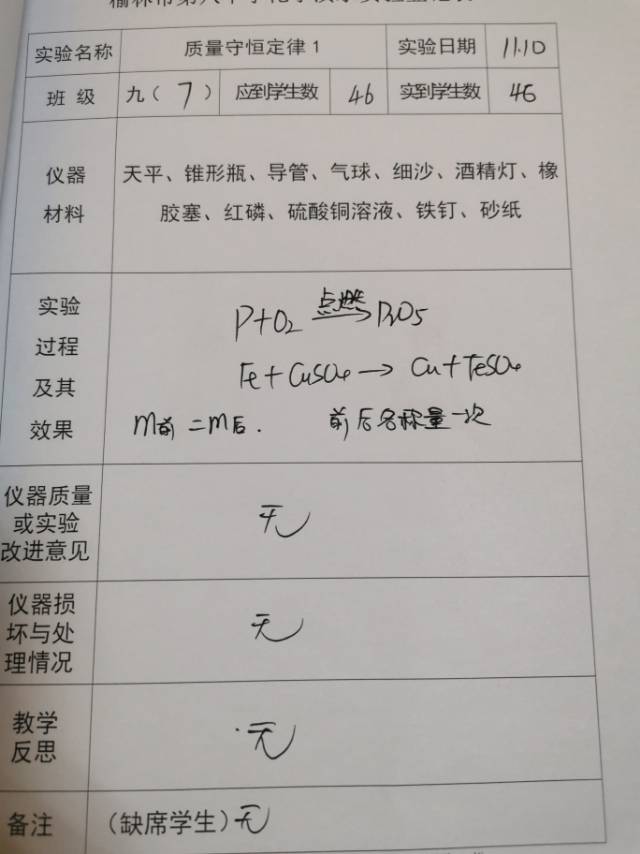 实验名称 质量守恒定律1 实验日期 11.10
班 级 九( 7 ) 应到学生数 46 实到学生数 46
仪器
材料
天平、锥形瓶、导管、气球、细沙、酒精灯、橡
胶塞、红磷、硫酸铜溶液、铁钉、砂纸
实验
过程
及其
效果
P+O2 点燃→ P2O5
Fe+CuSO4→Cu+FeSO4
m前=m后. 前后各称量一次
仪器质量
或实验
改进意见
无
仪器损
坏与处
理情况
无
教学
反思
无
备注 (缺席学生)无